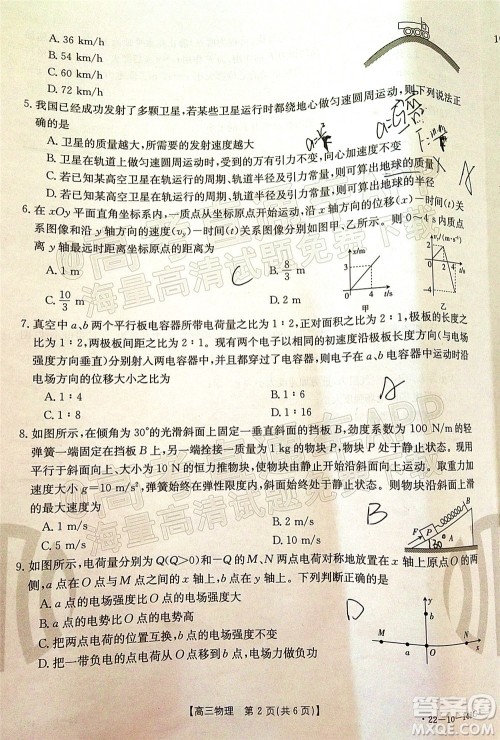 A. 36 km/h
B. 54 km/h
C. 60 km/h
D. 72 km/h
5. 我国已经成功发射了多颗卫星,若某些卫星运行时都绕地心做匀速圆周运动,则下列说法正
确的是
A. 卫星的质量越大,所需要的发射速度越大
B. 卫星做匀速圆周运动时,受到的万有引力不变,向心加速度不变
C. 若已知某高空卫星在轨运行的周期、轨道半径与引力常量,则可算出地球的质量
D. 若已知某高空卫星在轨运行的周期、轨道半径与引力常量,则可算出地球的半径
A
6. 在 xOy 平面直角坐标系内,一质点从坐标原点开始运动,沿 x 轴方向的位移(x)—时间关
系图像及沿 y 轴方向的速度(vy)—时间关系图像分别如图甲、乙所示。则 0～4 s内,质点
离开 y 轴最远时距离坐标原点的距离为
A. 1 m
B. 8/3 m
C. 10/3 m
D. 4 m
C
x/m
4
0
4
t/s
甲
2
0
2
4
t/s
乙
7. 真空中 a、b 两个平行板电容器所带电荷量为 1∶2,两极板的面积之比为 2∶1,极板的长度之
比为 1∶2,板间距离之比为 2∶1。现有两个电子以相同的初速度沿平行于极板方向(与电
场强度方向垂直)分别射入两电容器中,并都穿过了电容器,则在电子穿过电容器的运动中沿
电场方向的位移大小之比为
A. 1∶4
B. 1∶2
C. 1∶8
D. 1∶16
A
8. 如图所示,在倾角为 30°的光滑斜面上固定一垂直斜面的挡板 B,劲度系数为 100 N/m 的轻
弹簧一端固定在挡板 B 上,另一端拴接一质量为 1 kg 的物块 P,物块 P 处于静止状态。现
对物块施加平行于斜面向上、大小为 10 N 的推力 F,物块 P 仍处于静止状态。取重力加速
度大小 g=10 m/s²,弹簧始终处于弹性限度内。撤去推力后,物块由静止开始运动到最低点
的最大速度为
A. 2 m/s
B. 1 m/s
C. 5 m/s
D. 10 m/s
B
F
P
B
30°
9. 如图所示,电荷量分别为+Q(Q>0)和－Q 的 M、N 两点电荷对称地放置在 x 轴上原点 O 的两
侧,a 点在 O 点与点电荷 N 之间的 x 轴上,b 点在 y 轴上。下列判断正确的是
A. a 点的电场强度比 O 点的电场强度小
B. a 点的电势比 b 点的电势高
C. 把两点电荷的位置互换,b 点的电场强度不变
D. 把一带负电的点电荷从 O 点移到 b 点,其电势能不变
D
M
O
a
N
x
【高三物理 第 2 页(共 6 页)】
·22－10－
海量高清试题免费下载